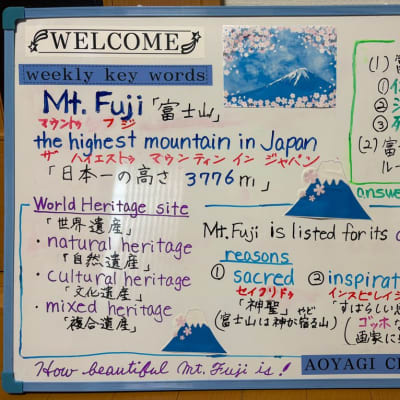 WELCOME
weekly key words
Mt. Fuji 「富士山」
マウントゥ フジ
the highest mountain in Japan
ザ ハイエストゥ マウンティン イン ジャパン
「日本一の高さ 3776m」
World Heritage site
「世界遺産」
・natural heritage
「自然遺産」
・cultural heritage
「文化遺産」
・mixed heritage
「複合遺産」
Mt. Fuji is listed for its
reasons
① sacred ② inspirat
セイクリドゥ インスピレイシ
「神聖」やど 「すばらしい
(富士山は神が宿る山) (ゴッホな
画家に
How beautiful Mt. Fuji is!
AOYAGI C
(1)
①
②
③
(2) 富
ルー
answe